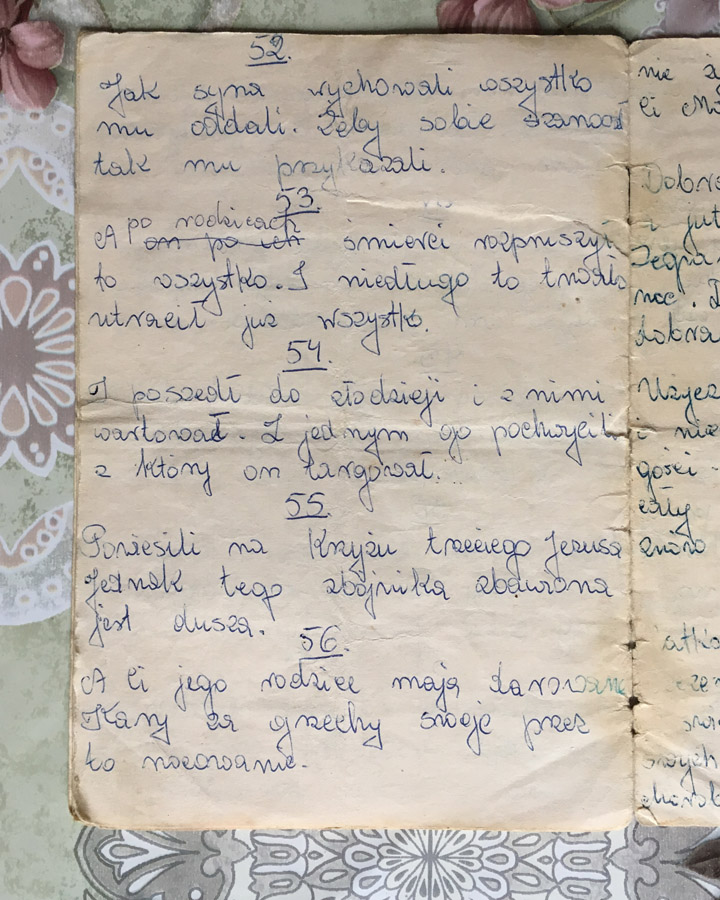 52.
Jak syna wychowali wszystko
mu oddali. Żeby sobie szanował
tak mu przykazali.
53.
po rodzicach
A on po ich śmierci rozpruszył
to wszystko. I niedługo to trwało
utracił już wszystko.
54.
I poszedł do złodzieji i z nimi
wartował. I jednym go pochwycili
z który on targował.
55.
Powiesili na Krzyżu trzeciego Jezusa
Jednak tego zbójnika zbawiona
jest dusza.
56.
A ci jego rodzice mają darowane
Kary za grzechy swoje przez
to nocowanie.
nie
ci
Dobra
i jut
noc.
dobra
i nie
gości
cały
znów